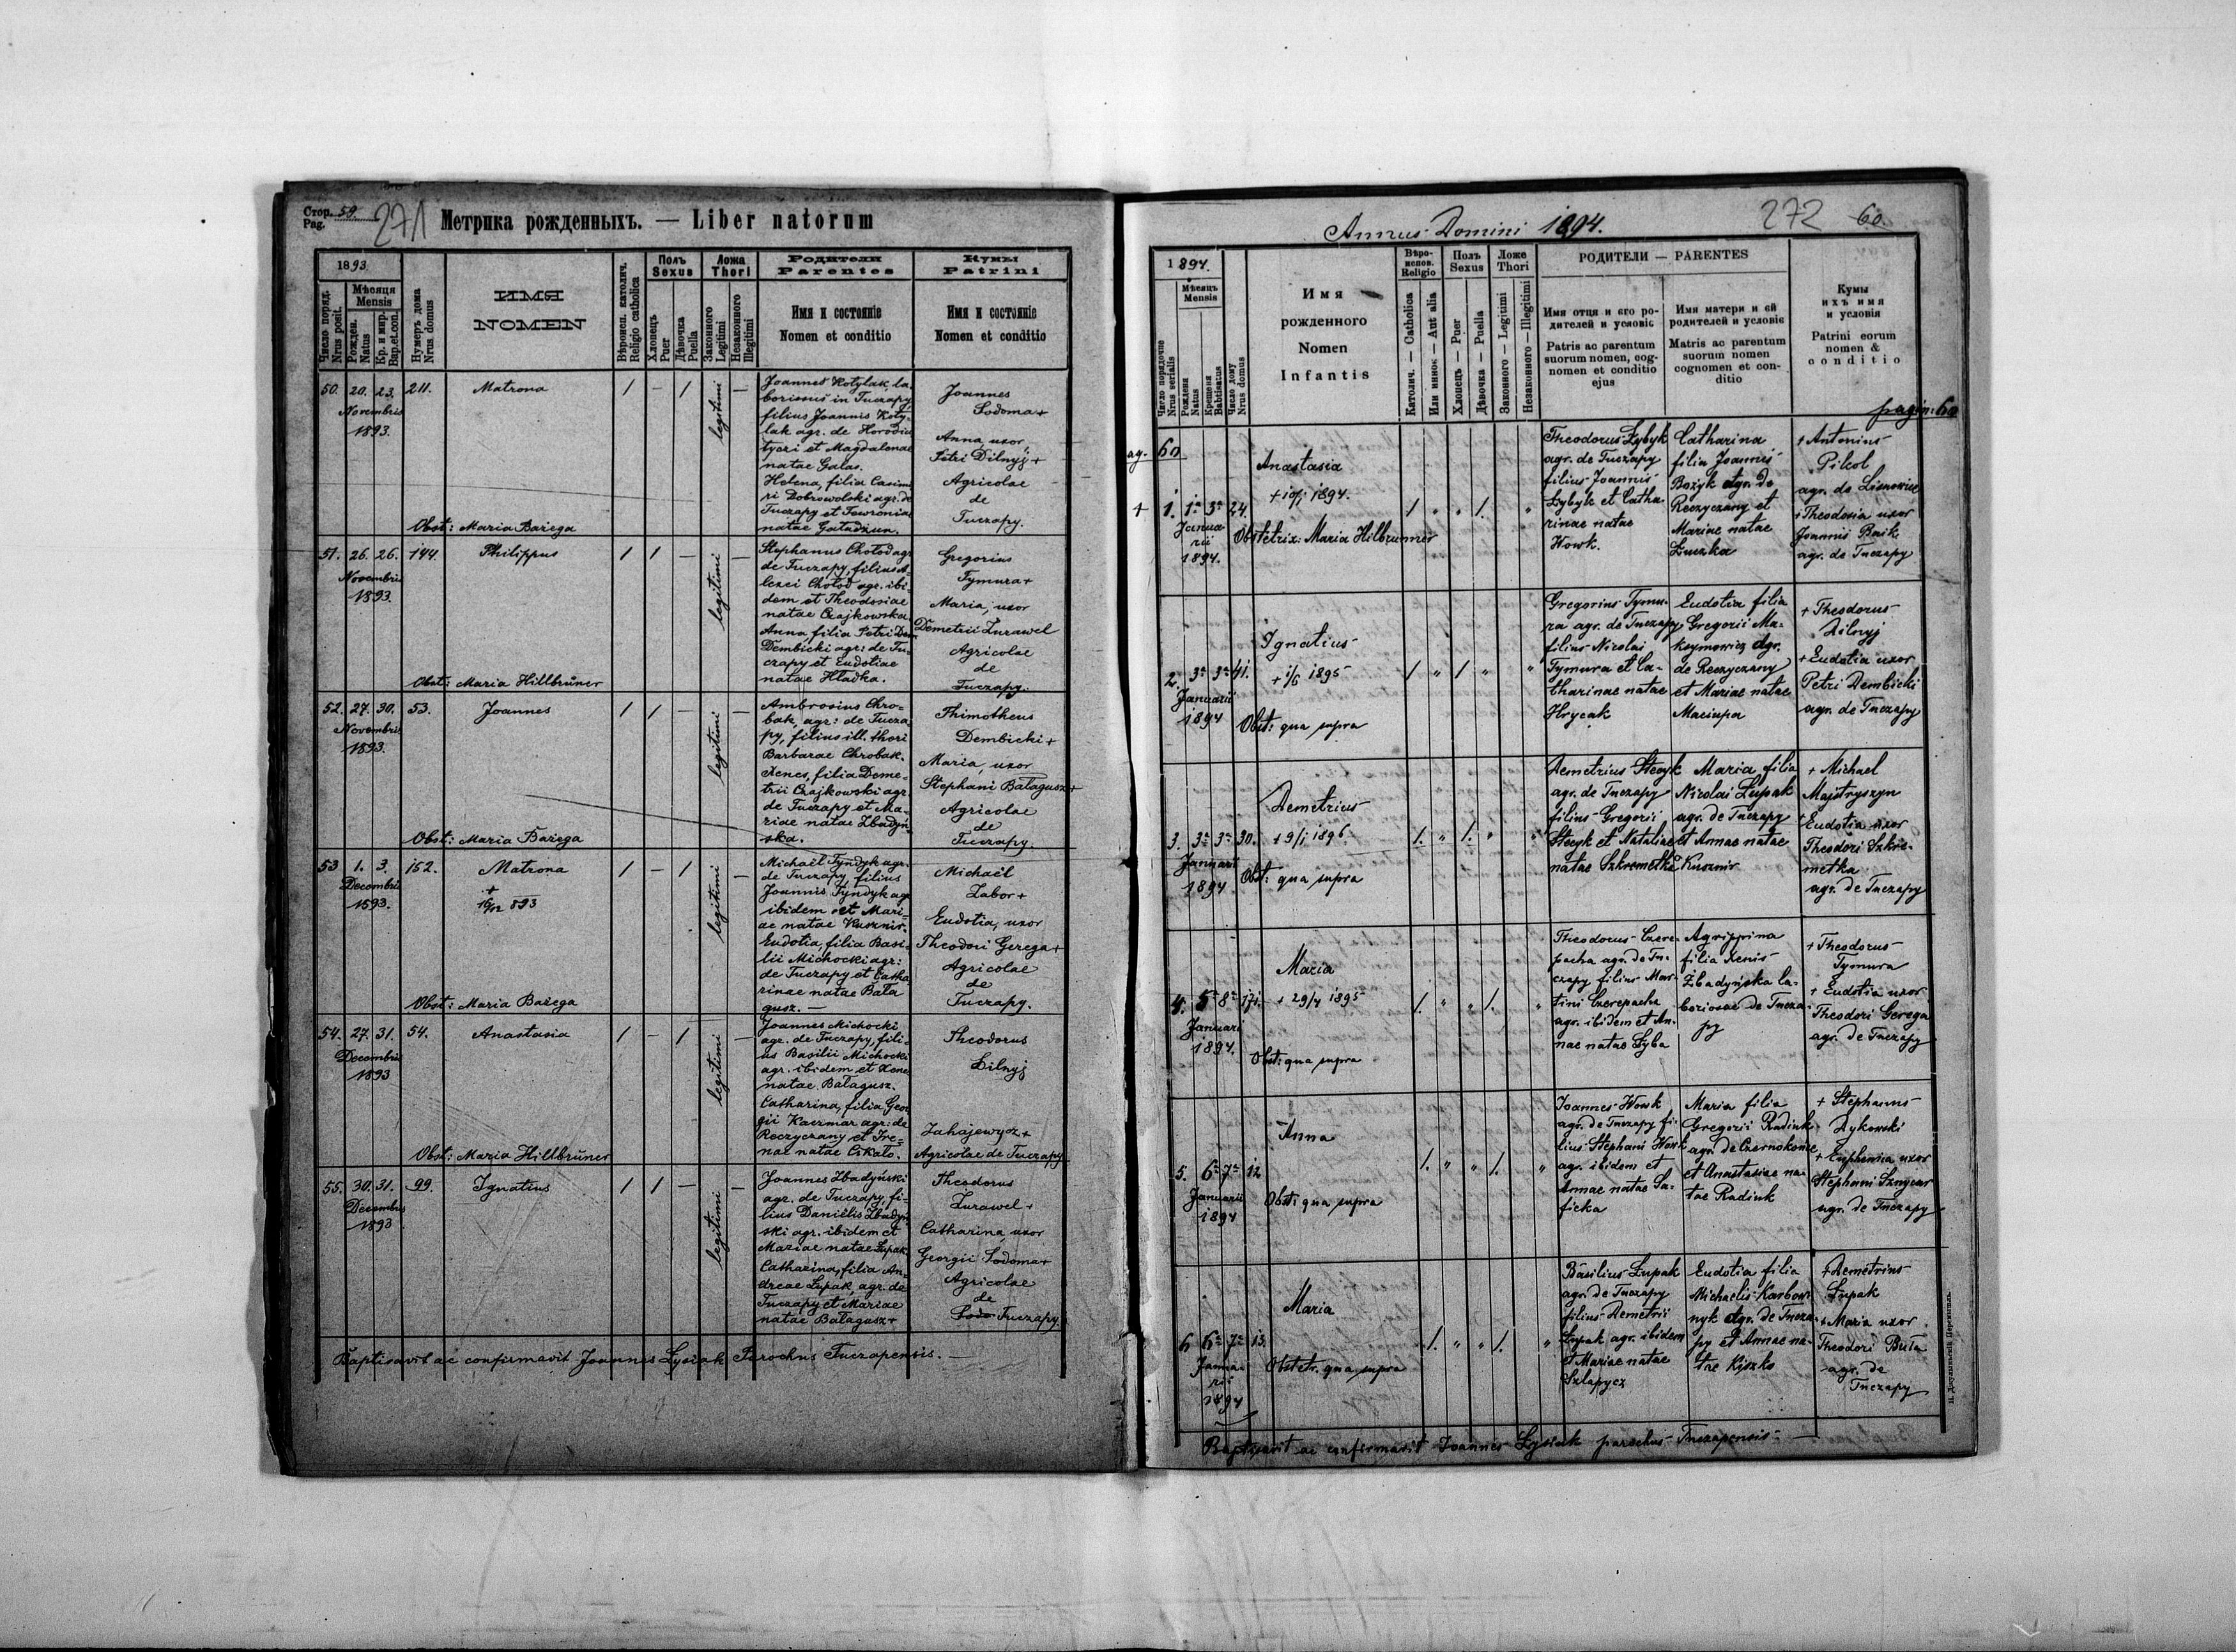 Стор. 59.
Pag.
271
Метрика рожденныхъ. — Liber natorum
1893
Число поряд.
Nrus posit.
Мѣсяця
Mensis
Рожден.
Natus
Кр. и мир.
Bap.et.con.
Нумеръ дома
Nrus domus
ИМЯ
NOMEN
Вѣроисп. католич.
Religio catholica
Полъ
Sexus
Хлопецъ
Puer
Дѣвочка
Puella
Ложа
Thori
Законного
Legitimi
Незаконного
Illegitimi
Родители
Parentes
Имя и состояніе
Nomen et conditio
Кумы
Patrini
Имя и состояніе
Nomen et conditio
50. 20. 23. 211. Matrona / — / legitimi —
Novembris
1893.
Obst: Maria Bařega
Joannes Kotylak, la-
boriosus in Tuczapy
filius Joannis Koty-
lak agr. de Horodis
tyczi et Magdalenae
natae Galas.
Helena, filia Casimi
ri Dobrowolski agr. de
Tuczapy et Tewronia
natae Gatadzun.
Joannes
Sodoma+
Anna, uxor
Petri Dilnyj+
Agricolae
de
Tuczapy.
51. 26. 26. 144. Philippus / / — legitimi —
Novembris
1893.
Obst: Maria Hillbrüner
Stephanus Chołod agr
de Tuczapy, filius A-
lexei Chołod agr. ibi
dem et Theodosiae
natae Czajkowska
Anna filia Petri Dem
Dembicki agr: de Tu-
czapy et Eudotiae
natae Hładka.
Gregorius
Tymura+
Maria, uxor
Demetrii Zurawel
Agricolae
de
Tuczapy.
52. 27. 30. 53. Joannes / / — legitimi —
Novembris
1893.
Obst: Maria Bařega
Ambrosius Chro-
bak, agr: de Tucza-
py, filius ill. thori
Barbarae Chrobak.
Xenes, filia Deme-
trii Czajkowski agr
de Tuczapy et Ma-
riae natae Zbadyń-
ska.
Thimotheus
Dembicki+
Maria, uxor
Stephani Bałagusz+
Agricolae
de
Tuczapy.
53 1. 3. 152. Matrona / — / legitimi —
Decembris
1893.
+
16/12 893
Obst: Maria Bařega
Michaël Tyndyk agr.
de Tuczapy, filius
Joannis Tyndyk agr
ibidem et Mari-
ae natae Kusznir.
Eudotia, filia Basi-
lii Michocki agr:
de Tuczapy et Catha
rinae natae Bała
gusz. —
Michaël
Zabor+
Eudotia, uxor
Theodori Gerega+
Agricolae
de
Tuczapy.
54. 27. 31. 54. Anastasia / — / legitimi —
Decembris
1893
Obst: Maria Hillbrüner
Joannes Michocki
agr. de Tuczapy, fili-
us Basilii Michocki
agr. ibidem et Xene
natae Bałagusz.
Catharina, filia Geor
gii Kaczmar agr: de
Reczyczany et Ire-
nae natae Cikało.
Theodorus
Dilnyj
Zahajewycz+
Agricolae de Tuczapy
55. 30. 31. 99. Ignatius / / — legitimi —
Decembris
1893
Joannes Zbadyński
agr. de Tuczapy, fi-
lius Daniëlis Zbadyń
ski agr. ibidem et
Mariae natae Łupak.
Catharina, filia An-
dreae Łupak, agr. de
Tuczapy et Mariae
natae Bałagusz+
Theodorus
Zurawel+
Catharina, uxor
Georgii Sodoma+
Agricolae
de
Tuczapy.
Baptisavit ac confirmavit Joannes Lysiak Parochus Tuczapensis. —
Annus Domini 1894.
272
60.
1894.
Число порядочне
Nrus serialis
Мѣсяцъ
Mensis
Рожденя
Natus
Крещеня
Babtisatus
Число дому
Nrus domus
Имя
рожденного
Nomen
Infantis
Вѣро-
испов.
Religio
Католич. — Catholica
Или инное — Aut alia
Полъ
Sexus
Хлопець — Puer
Дѣвочка — Puella
Ложе
Thori
Законного — Legitimi
Незаконного — Illegitimi
РОДИТЕЛИ — PARENTES
Имя отця и его ро-
дителей и условіє
Patris ac parentum
suorum nomen, cog-
nomen et conditio
ejus
Имя матери и ей
родителей и условіє
Matris ac parentum
suorum nomen
cognomen et con-
ditio
Кумы
ихъ имя
и условія
Patrini eorum
nomen &
conditio
pagin: 60
ag. 60
+ 1. 1a 3a 24. Anastasia / " " /. "
Janua-
rii
1894.
+ 10/1 1894.
Obstetrix: Maria Hilbrunner
Theodorus Łybyk
agr. de Tuczapy
filius Joannis
Łybyk et Catha-
rinae natae
Howk.
Catharina
filia Joannis
Bożyk agr. de
Reczyczany et
Mariae natae
Łuczka
+ Antonius
Pikol
agr. de Lisnowice
+ Theodosia uxor
Joannis Baik
agr. de Tuczapy
2. 3a 3a 41. Ignatius / " / " "
Januarii
1894
+ 1/6 1895
Obst: qua supra
Gregorius Tymu-
ra agr. de Tuczapy
filius Nicolai
Tymura et Ca-
tharinae natae
Hrycak
Eudotia filia
Gregorii Ma-
ksymowicz agr.
de Reczyczany
et Mariae natae
Maciupa
+ Theodorus
Dilnyj
+ Eudotia uxor
Petri Dembicki
agr. de Tuczapy
3. 3a 3a 30. Demetrius /. " /. " "
Januarii
1894
+ 9/1 1896.
Obst: qua supra
Demetrius Stecyk
agr. de Tuczapy
filius Gregorii
Stecyk et Nataliae
natae Szkrometka
Maria filia
Nicolai Łupak
agr. de Tuczapy
et Annae natae
Kusznir
+ Michael
Majstryszyn
+ Eudotia uxor
Theodori Szkro-
metka
agr. de Tuczapy
4. 5a 8a 171. Maria /. " " /. "
Januarii
1894.
+ 29/4 1895
Obst: qua supra
Theodorus Czere-
pacha agr. de Tu-
czapy filius Mar-
tini Czerepacha
agr. ibidem et An-
nae natae Łyba
Agrippina
filia Xenis
Zbadyńska la-
boriosae de Tucza-
py
+ Theodorus
Tymura
+ Eudotia uxor
Theodori Gerega
agr. de Tuczapy
5. 6a 7a 12 Anna /. " " /. "
Januarii
1894
Obst: qua supra
Joannes Howk
agr. de Tuczapy fi-
lius Stephani Howk
agr. ibidem et
Annae natae Sa-
ficka
Maria filia
Gregorii Radiuk
agr. de Czernokońce
et Anastasiae na-
tae Radiuk
+ Stephanus
Dykowski
+ Euphemia uxor
Stephani Sznycar
agr. de Tuczapy
6 6a 7a 13. Maria /. " " /. "
Janua-
rii
1894
Obstetr. qua supra
Basilius Łupak
agr. de Tuczapy
filius Demetrii
Łupak agr. ibidem
et Mariae natae
Szlapycz
Eudotia filia
Michaelis Karbow-
nyk agr. de Tucza-
py et Annae na-
tae Kiszko
+ Demetrius
Łupak
+ Maria uxor
Theodori Buła
agr. de
Tuczapy
Baptisavit ac confirmavit Joannes Lysiak parochus Tuczapensis —